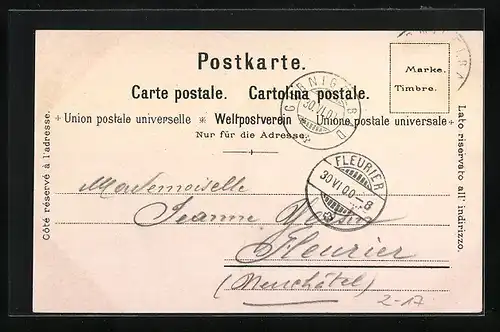 Postkarte.
Marke.
Timbre.
Carte postale. Cartolina postale.
+ Union postale universelle ※ Weltpostverein ※ Unione postale universale +
Nur für die Adresse.
Côté réservé à l'adresse.
Lato riservato all' indirizzo.
30.VI.00
FLEURIER
30 VI 00-8
Mademoiselle
Jeanne
Fleurier
(Neuchâtel)
2-17